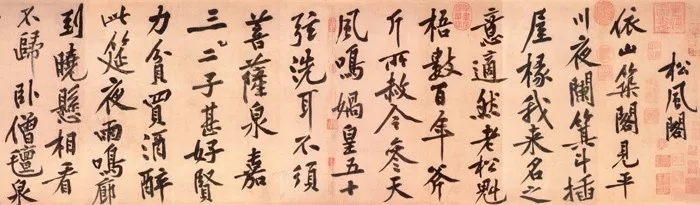 松風閣
依山築閣見平
川夜闌箕斗插
屋椽我來名之
意適然老松魁
梧數百年斧
斤所赦令參天
風鳴媧皇五十
弦洗耳不須
菩薩泉嘉
三二子甚好賢
力貧買酒醉
此筵夜雨鳴廊
到曉懸相看
不歸臥僧氈泉